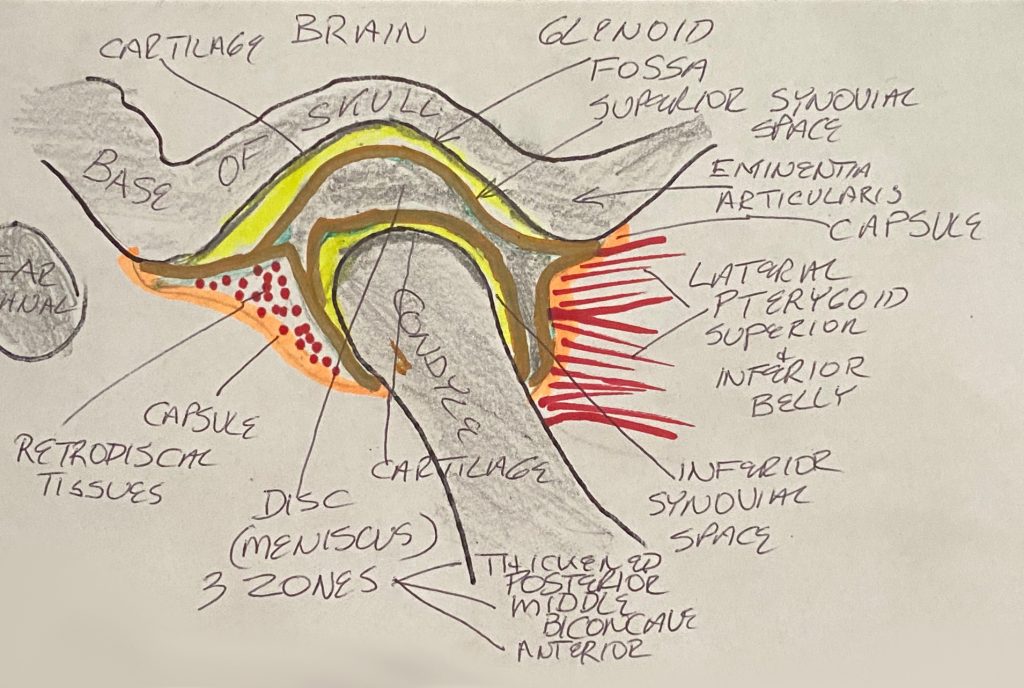 CARTILAGE
BRAIN
GLENOID
FOSSA
SUPERIOR SYNOVIAL
SPACE
BASE OF SKULL
EMINENTIA
ARTICULARIS
CAPSULE
EAR
LATERAL
PTERYGOID
SUPERIOR
&
INFERIOR
BELLY
CONDYLE
CAPSULE
RETRODISCAL
TISSUES
CARTILAGE
INFERIOR
SYNOVIAL
SPACE
DISC
(MENISCUS)
3 ZONES
THICKENED
POSTERIOR
MIDDLE
BICONCAVE
ANTERIOR